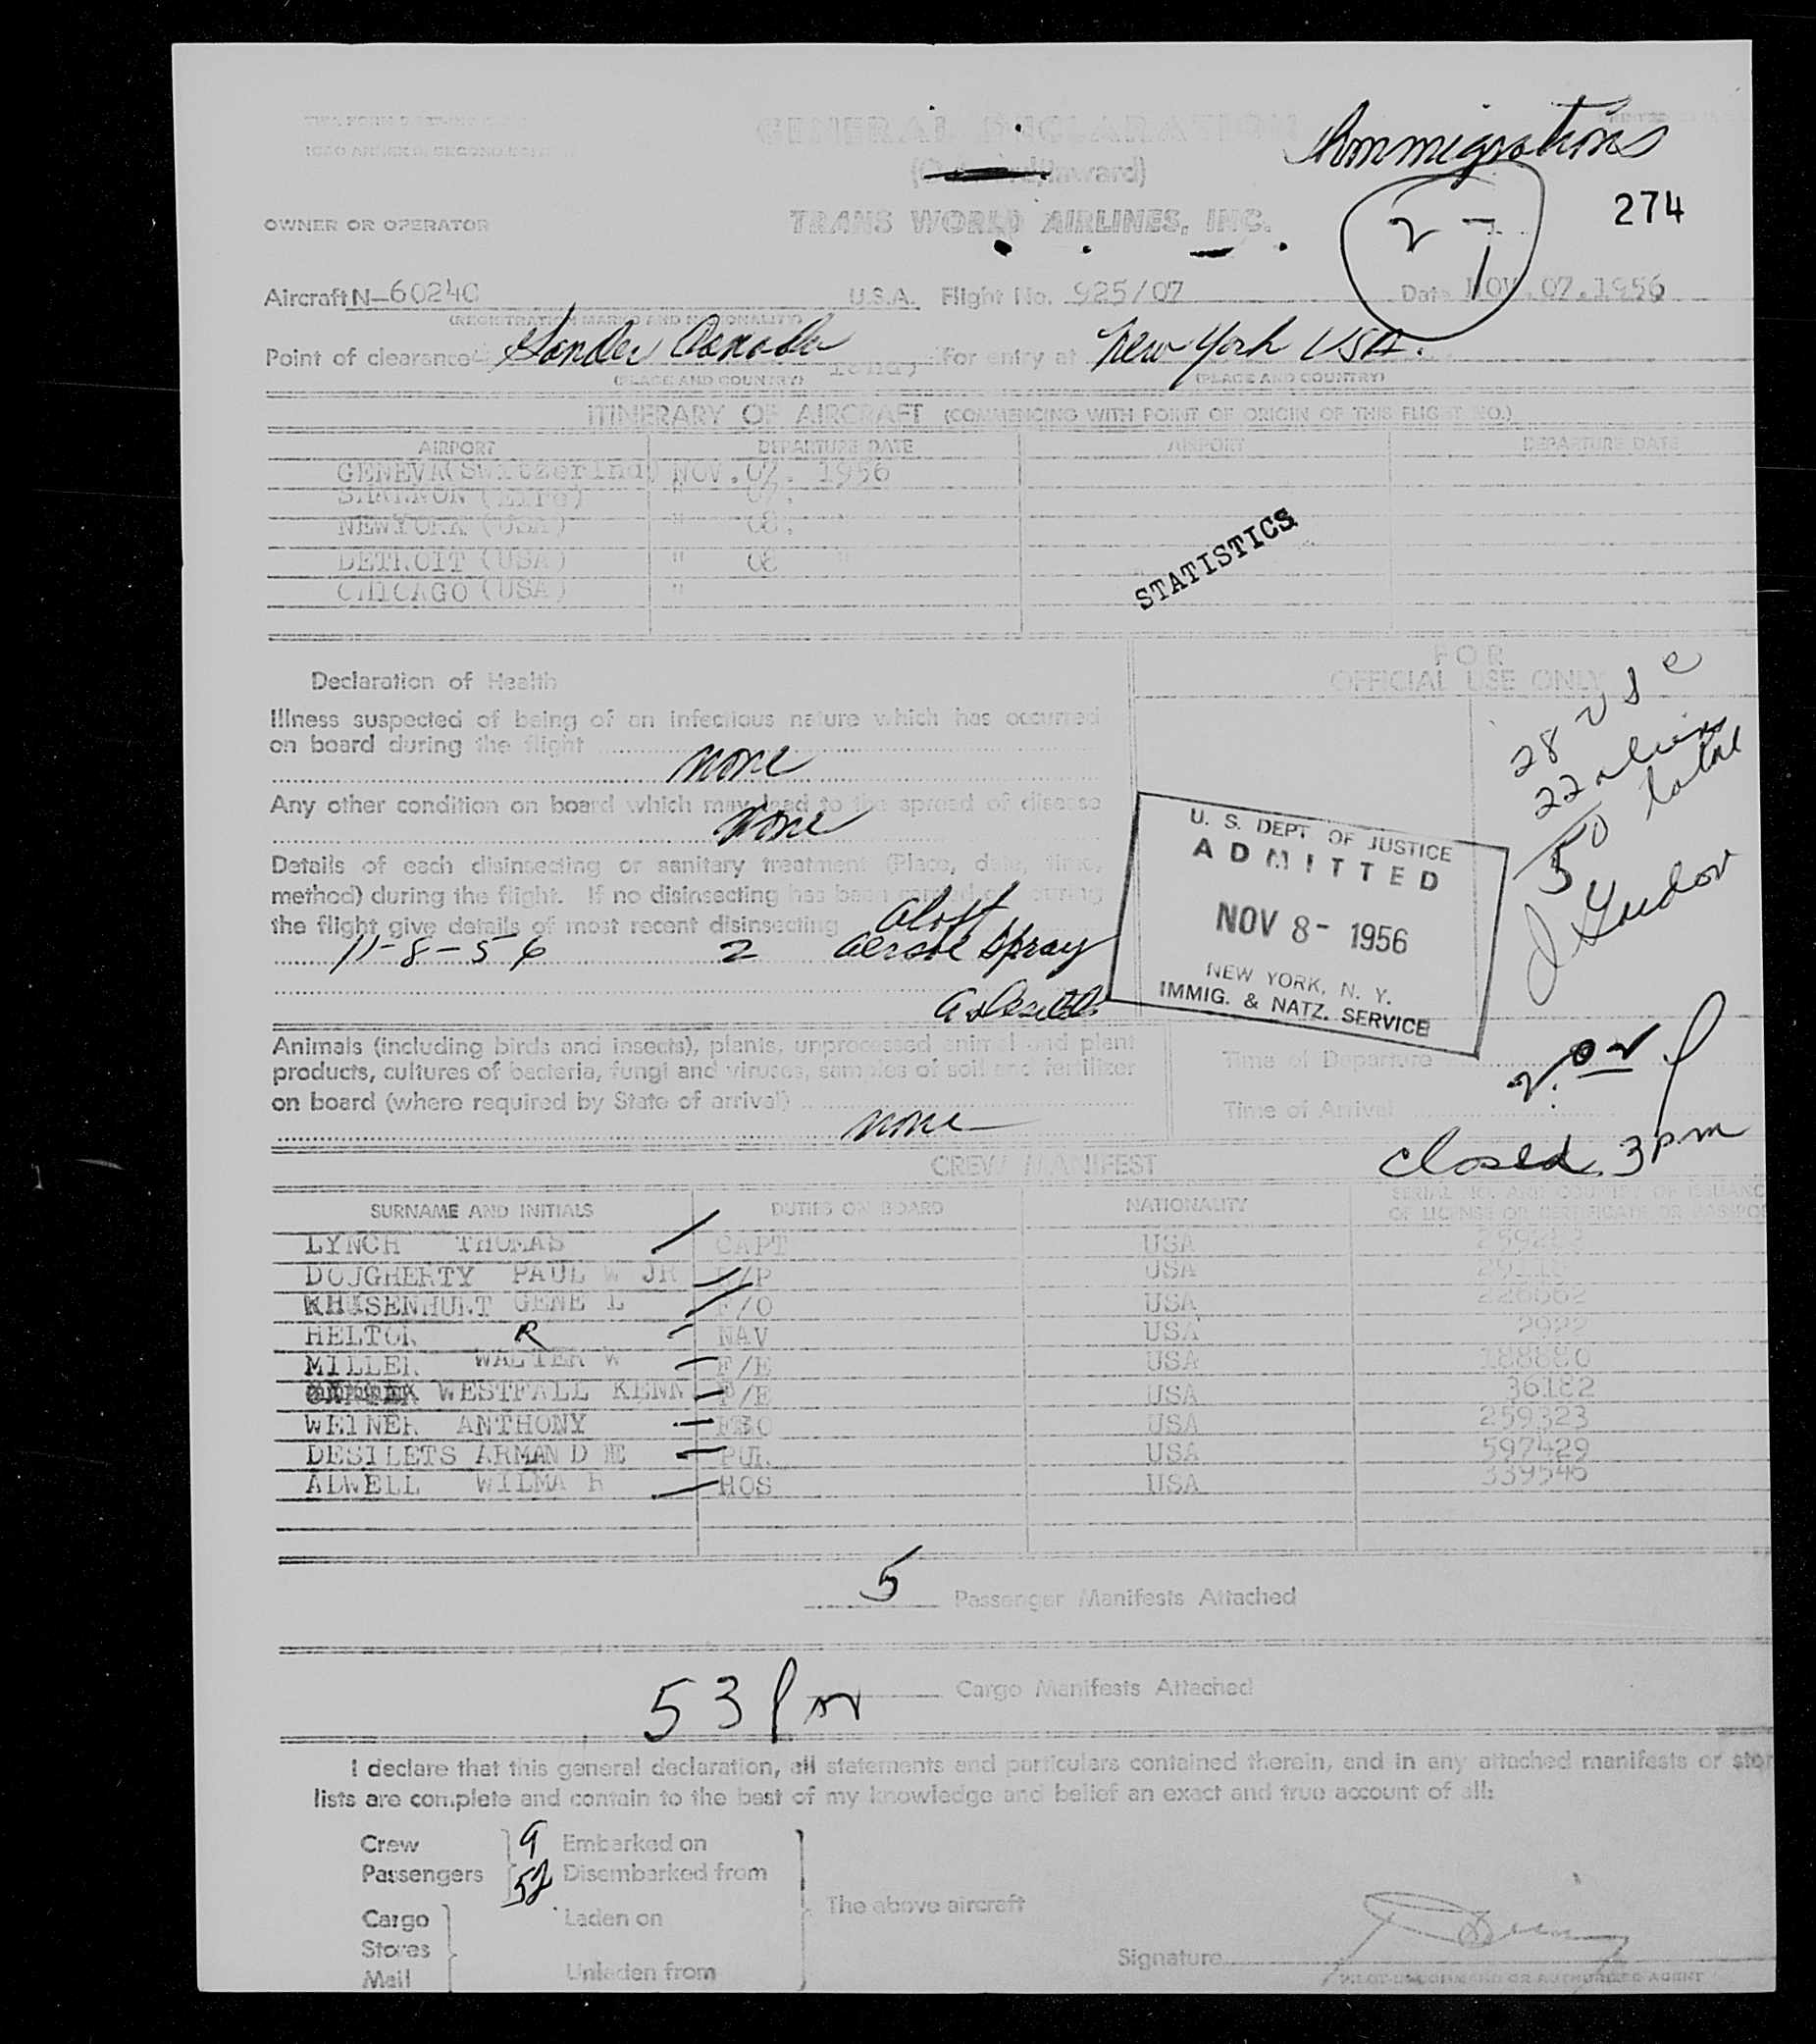 GENERAL DECLARATION
Immigrations
(Outward/Inward)
274
OWNER OR OPERATOR TRANS WORLD AIRLINES, INC.
27
Aircraft N-60240 U.S.A. Flight No. 925/07 Date NOV. 07. 1956
(REGISTRATION MARKS AND NATIONALITY)
Point of clearance Gander Canada For entry at New York USA.
(PLACE AND COUNTRY) (PLACE AND COUNTRY)
ITINERARY OF AIRCRAFT (COMMENCING WITH POINT OF ORIGIN OF THIS FLIGHT NO.)
AIRPORT DEPARTURE DATE AIRPORT DEPARTURE DATE
GENEVA (Switzerlnd) NOV. 07. 1956
SHANNON (Eire) " 07.
NEWYORK (USA) " 08. "
DETROIT (USA) " 08 "
CHICAGO (USA) "
STATISTICS
FOR
OFFICIAL USE ONLY
Declaration of Health
Illness suspected of being of an infectious nature which has occurred
on board during the flight
none
Any other condition on board which may lead to the spread of disease
none
Details of each disinsecting or sanitary treatment (Place, date, time,
method) during the flight. If no disinsecting has been carried out during
the flight give details of most recent disinsecting
Aloft
11-8-56 2 aersol spray
28 USC
22 aliens
50 total
U. S. DEPT. OF JUSTICE
ADMITTED
NOV 8- 1956
NEW YORK, N. Y.
IMMIG. & NATZ. SERVICE
Animals (including birds and insects), plants, unprocessed animal and plant
products, cultures of bacteria, fungi and viruses, samples of soil and fertilizer
on board (where required by State of arrival)
none
Time of Departure
Time of Arrival
closed 3pm
CREW MANIFEST
SURNAME AND INITIALS DUTIES ON BOARD NATIONALITY SERIAL NO. AND COUNTRY OF ISSUANC
OF LICENSE OR CERTIFICATE OR PASSPO
LYNCH THOMAS CAPT USA
DOUGHERTY PAUL W JR USA
GENE L F/O USA 226662
HELTON R NAV USA 2922
MILLER WALTER W F/E USA 188880
WESTFALL KENN F/E USA 36182
WEINER ANTHONY USA 259323
DESILETS ARMAND PUR USA 597429
ADWELL WILMA HOS USA 339546
5 Passenger Manifests Attached
53
Cargo Manifests Attached
I declare that this general declaration, all statements and particulars contained therein, and in any attached manifests or stor
lists are complete and contain to the best of my knowledge and belief an exact and true account of all:
Crew 9 Embarked on
Passengers Disembarked from
The above aircraft
Cargo Laden on
Stores
Mail Unladen from
Signature
PILOT-IN-COMMAND OR AUTHORIZED AGENT